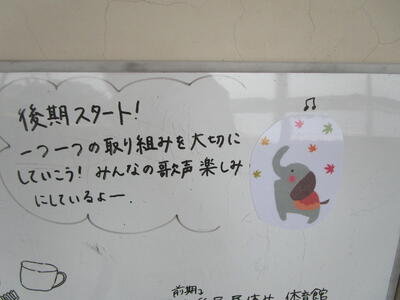 後期スタート!
一つ一つの取り組みを大切に
していこう! みんなの歌声楽しみ
にしているよー.
前期は
体育館